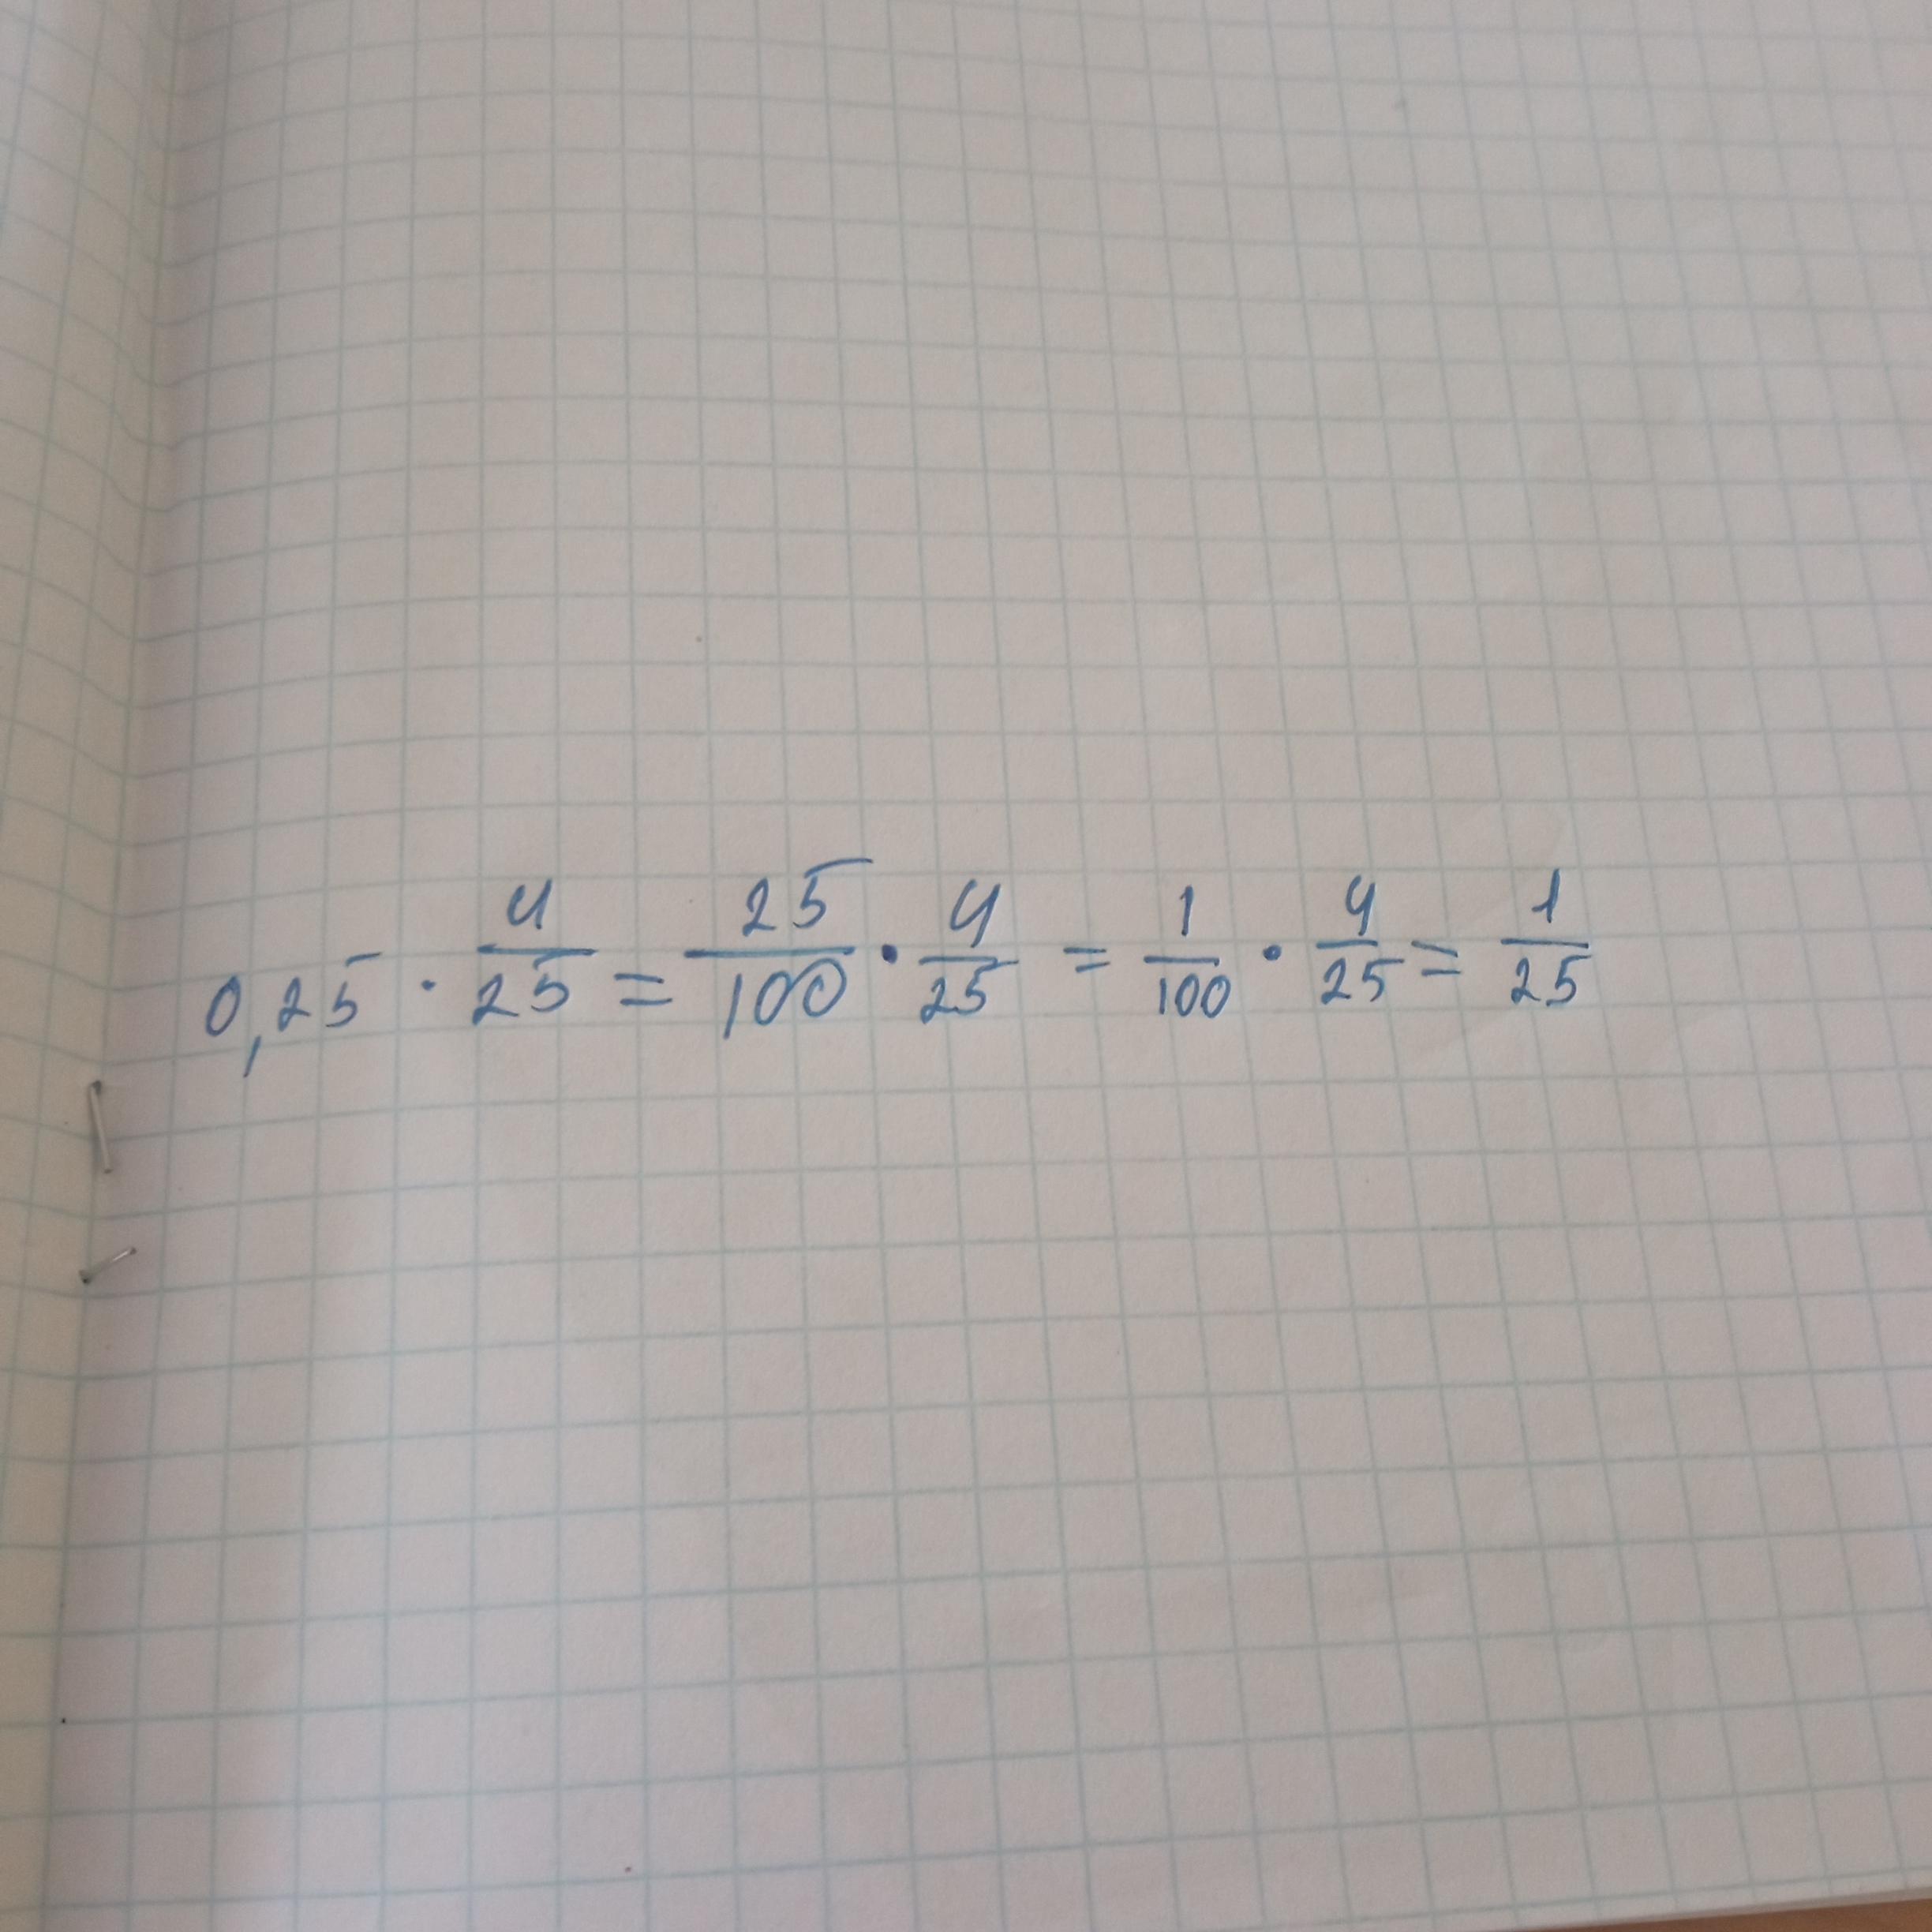 0,25 · 4/25 = 25/100 · 4/25 = 1/100 · 4/25 = 1/25